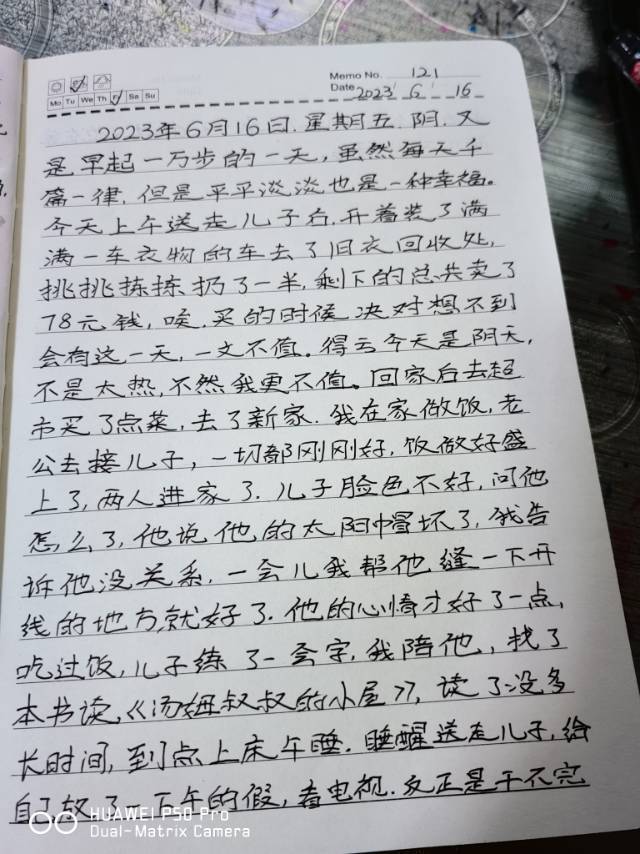 Memo No. 121
Mo Tu We Th Fr Sa Su
Date 2023 6 16
2023年6月16日.星期五.阴.又
是早起一万步的一天,虽然每天千
篇一律,但是平平淡淡也是一种幸福。
今天上午送走儿子后.开着装了满
满一车衣物的车去了旧衣回收处,
挑挑拣拣扔了一半,剩下的总共卖了
78元钱,唉,买的时候决对想不到
会有这一天,一文不值。得亏今天是阴天,
不是太热,不然我更不值。回家后去超
市买了点菜,去了新家.我在家做饭,老
公去接儿子,一切都刚刚好,饭做好盛
上了,两人进家了.儿子脸色不好,问他
怎么了,他说他的太阳帽坏了,我告
诉他没关系,一会儿我帮他缝一下开
线的地方就好了.他的心情才好了一点,
吃过饭,儿子练了一会字,我陪他,找了
本书读,《汤姆叔叔的小屋》,读了没多
长时间,到点上床午睡.睡醒送走儿子,给
自己放了一下午的假,看电视.反正是干不完
HUAWEI P50 Pro
Dual-Matrix Camera